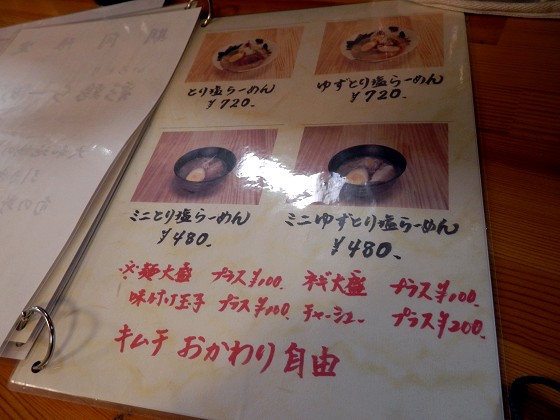 とり塩らーめん
¥720.
ゆずとり塩らーめん
¥720.
ミニとり塩らーめん
¥480.
ミニゆずとり塩らーめん
¥480.
※麺大盛 プラス¥100. ネギ大盛 プラス¥100.
味付け玉子 プラス¥100. チャーシュー プラス¥200.
キムチ おかわり自由